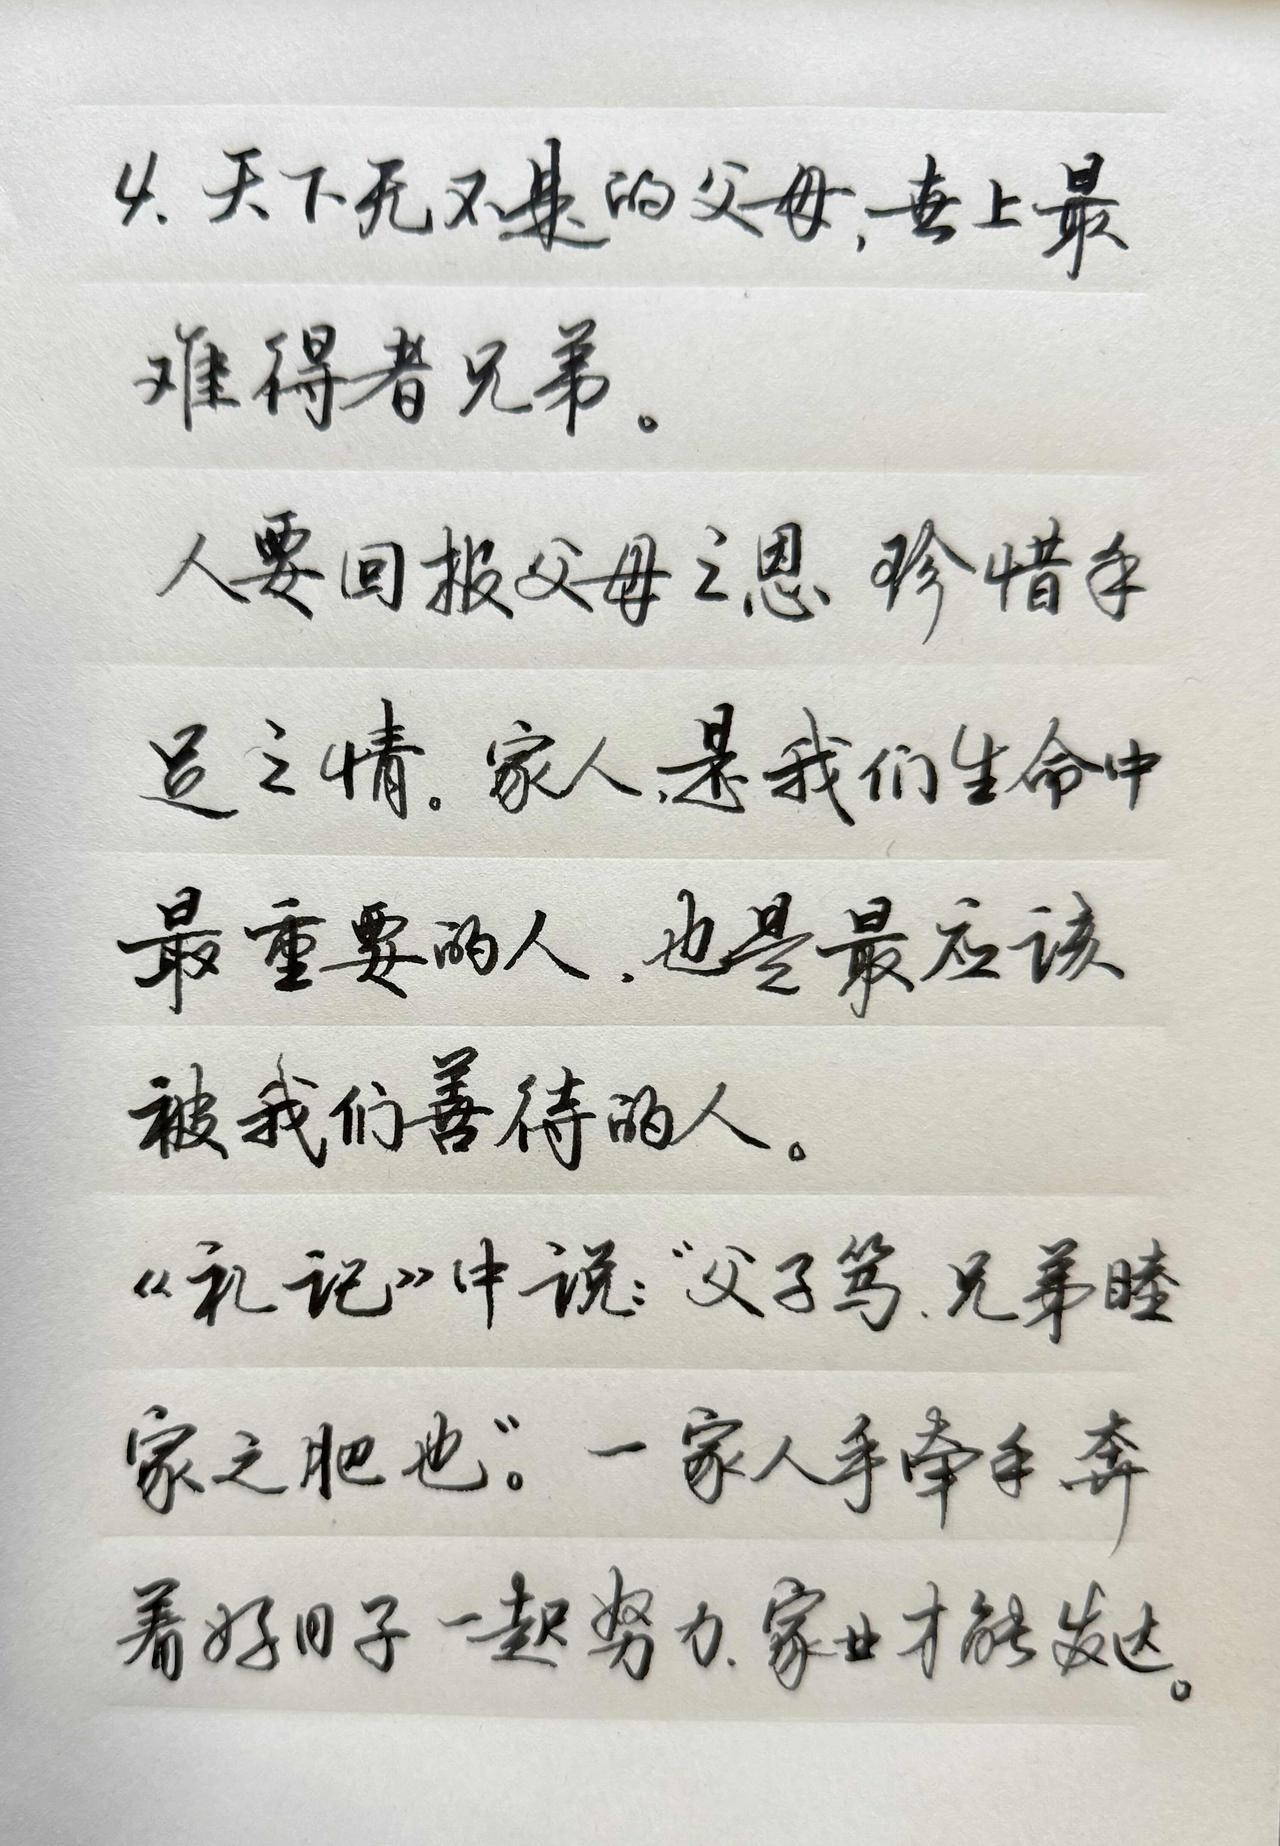 4.天下无不是的父母,世上最
难得者兄弟。
人要回报父母之恩、珍惜手
足之情。家人,是我们生命中
最重要的人,也是最应该
被我们善待的人。
《礼记》中说:“父子笃、兄弟睦
家之肥也”。一家人手牵手奔
着好日子一起努力、家业才能发达。